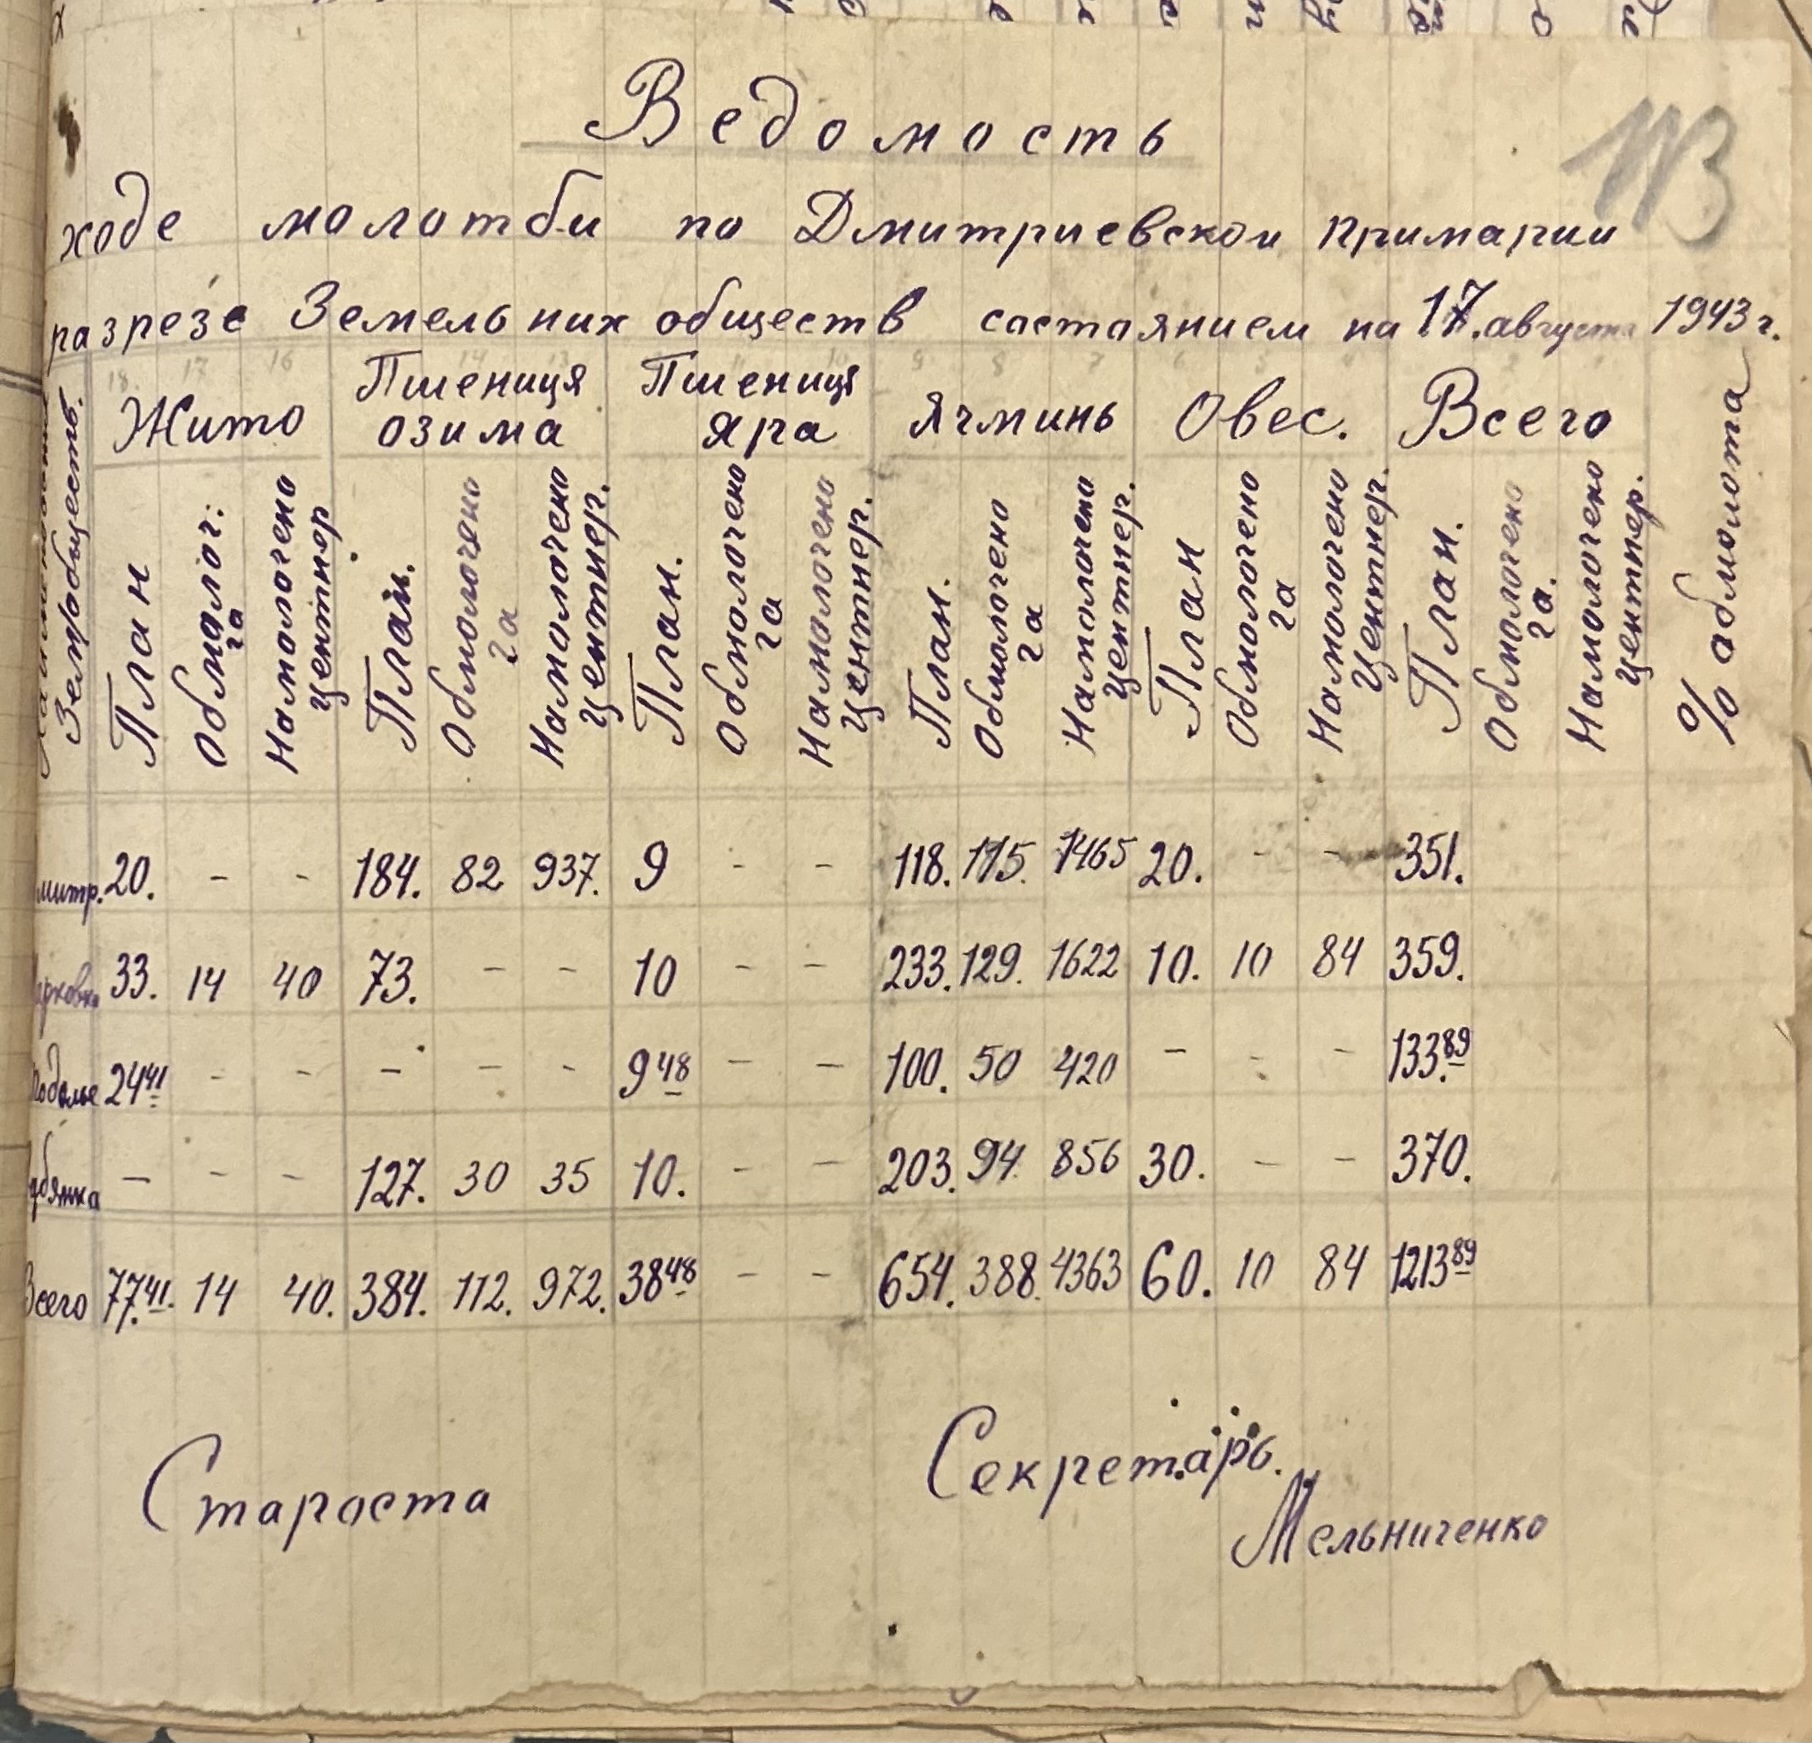 Ведомость
113
ходе молотби по Дмитриевской примарии
разрезе Земельних обществ состоянием на 17. августа 1943 г.
Земобществ. Жито Пшениця озима Пшениця яра Ячминь Овес. Всего % обмолота
План Обмолоч: га Намолочено центнер План. Обмолочено га Намолочено центнер. План. Обмолочено га Намолочено центнер. План. Обмолочено га Намолочено центнер. План Обмолочено га Намолочено центнер. План. Обмолочено га. Намолочено центнер.
митр. 20. - - 184. 82 937. 9 - - 118. 115. 1465 20. - - 351.
арковка 33. 14 40 73. - - 10 - - 233. 129. 1622 10. 10 84 359.
Подолье 24 41 - - - - - 9 48 - - 100. 50 420 - - - 133. 89
убянка - - - 127. 30 35 10. - - 203. 94. 856 30. - - 370.
Всего 77. 41. 14 40. 384. 112. 972. 38 48 - - 654. 388. 4363 60. 10 84 1213 89
Староста
Секретарь.
Мельниченко